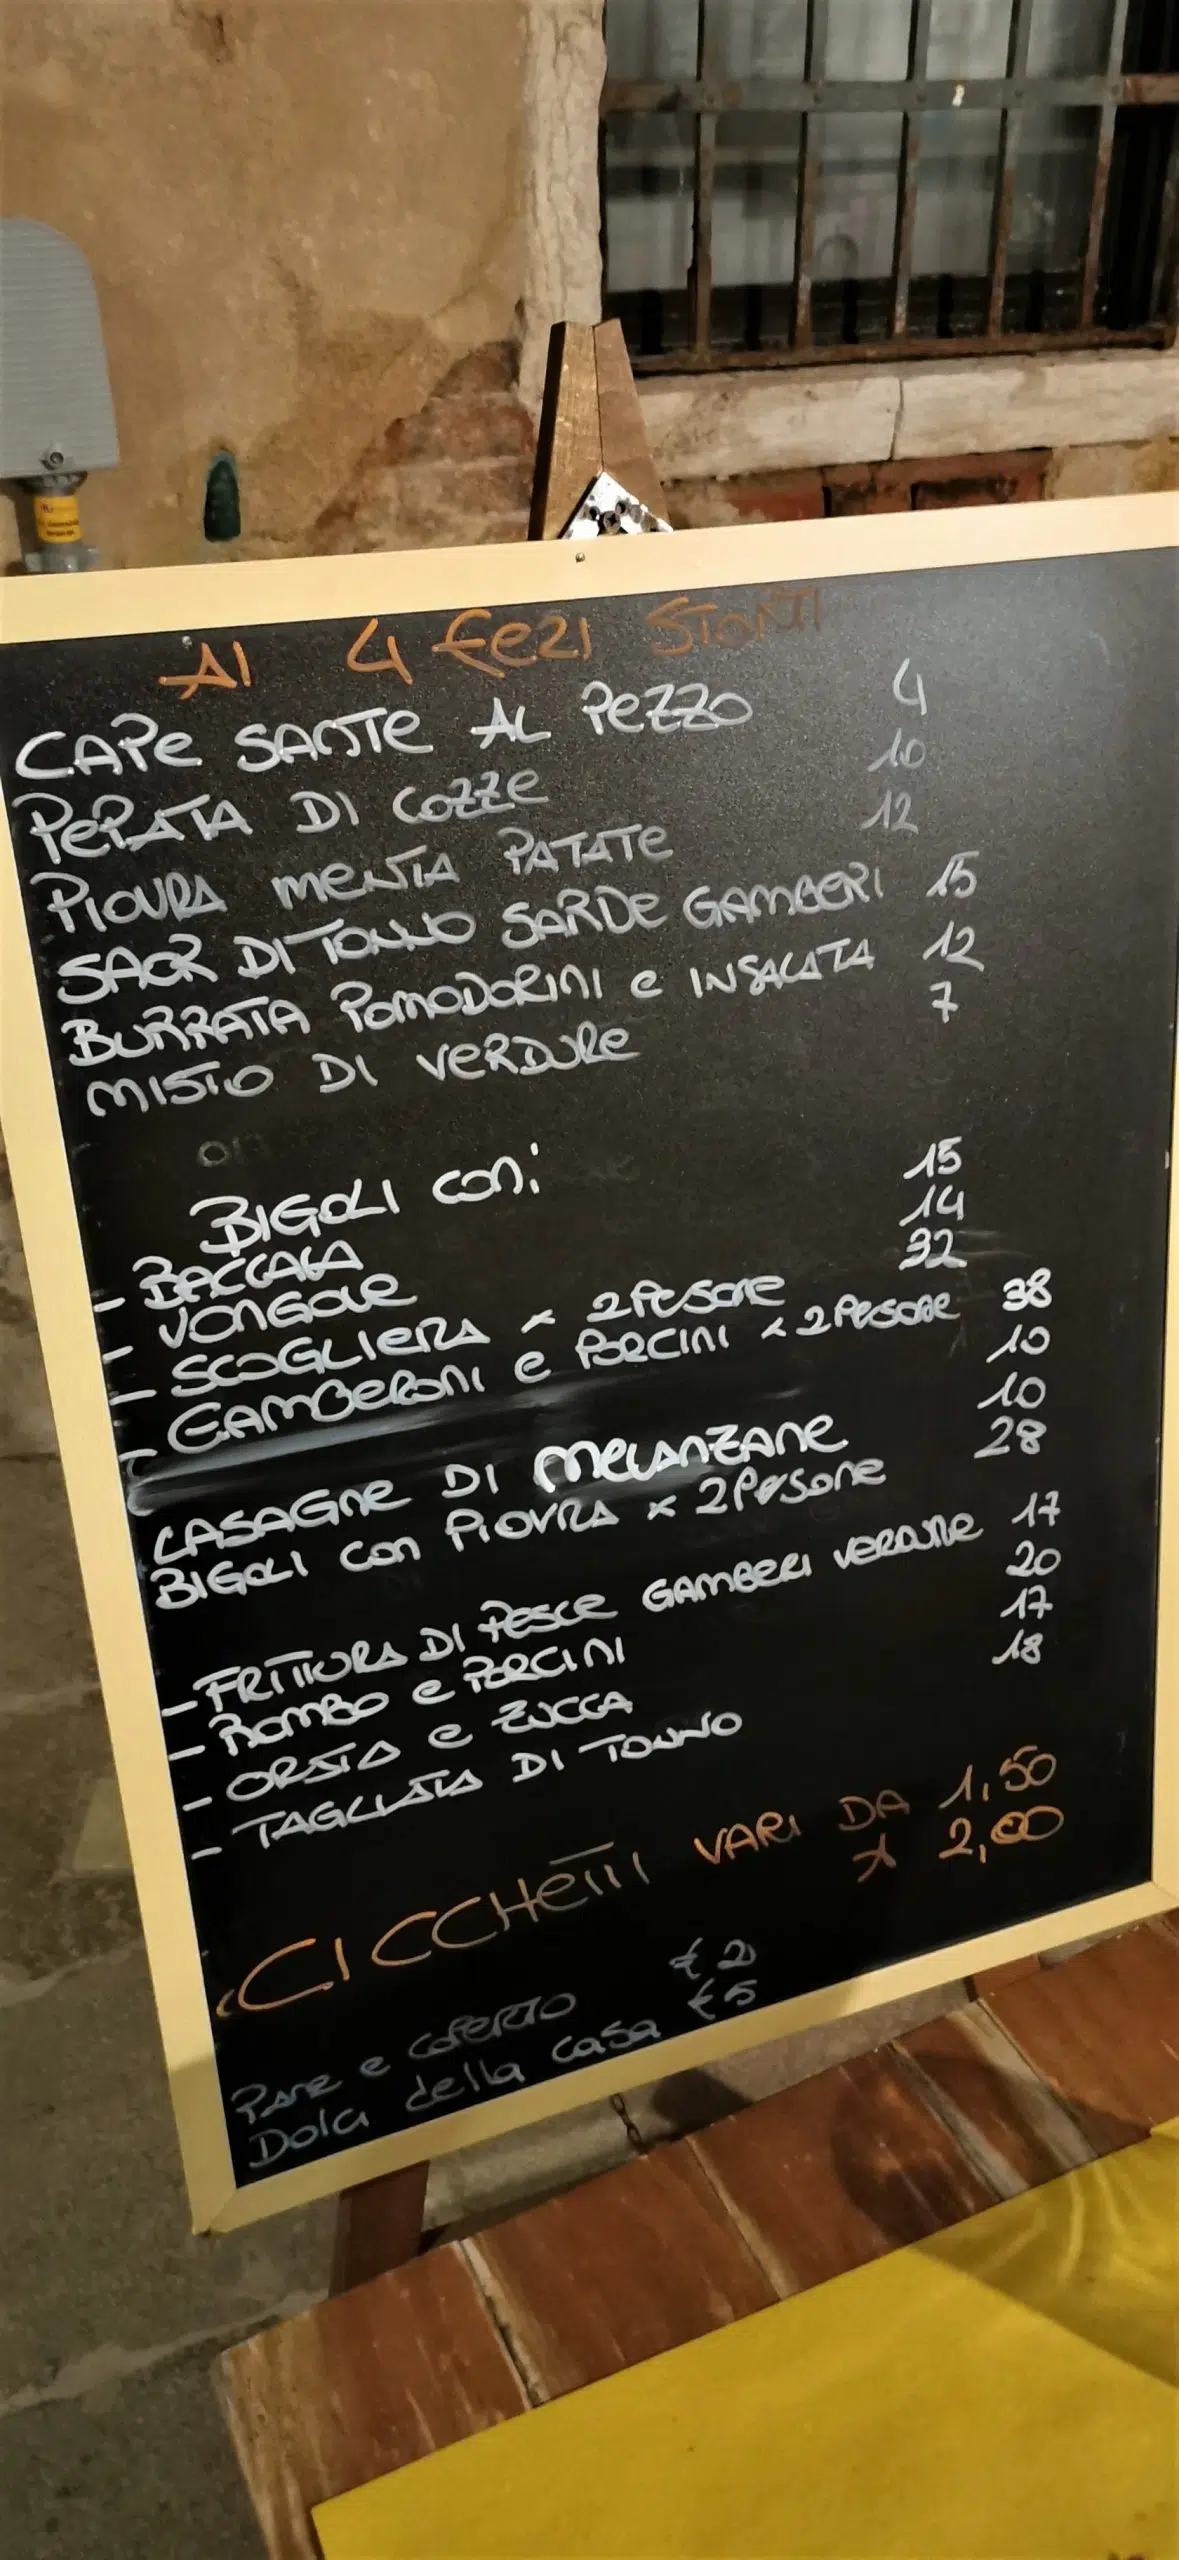 AI 4 FeRI STORTI
CAPE SANTE AL PEZZO 4
PEPATA DI COZZE 10
PIOVRA MENTA PATATE 12
SAOR DI TONNO SARDE GAMBERI 15
BURRATA POMODORINI e INSALATA 12
MISTO DI VERDURE 7
BIGOLI con:
- BACCALA 15
- VONGOLE 14
- SCOGLIERA x 2 PeRSONE 32
- GAMBERONI e PORCINI x 2 PERSONE 38
10
LASAGNE DI MELANZANE 10
BIGOLI con PIOVRA x 2 PERSONE 28
- FRITTURA DI PESCE GAMBERI VERDURE 17
- ROMBO e PORCINI 20
- ORATA e ZUCCA 17
- TAGLIATA DI TONNO 18
CICCHETTI VARI DA 1,50
2,00
PANE e COPERTO € 2
Dolci della casa € 5